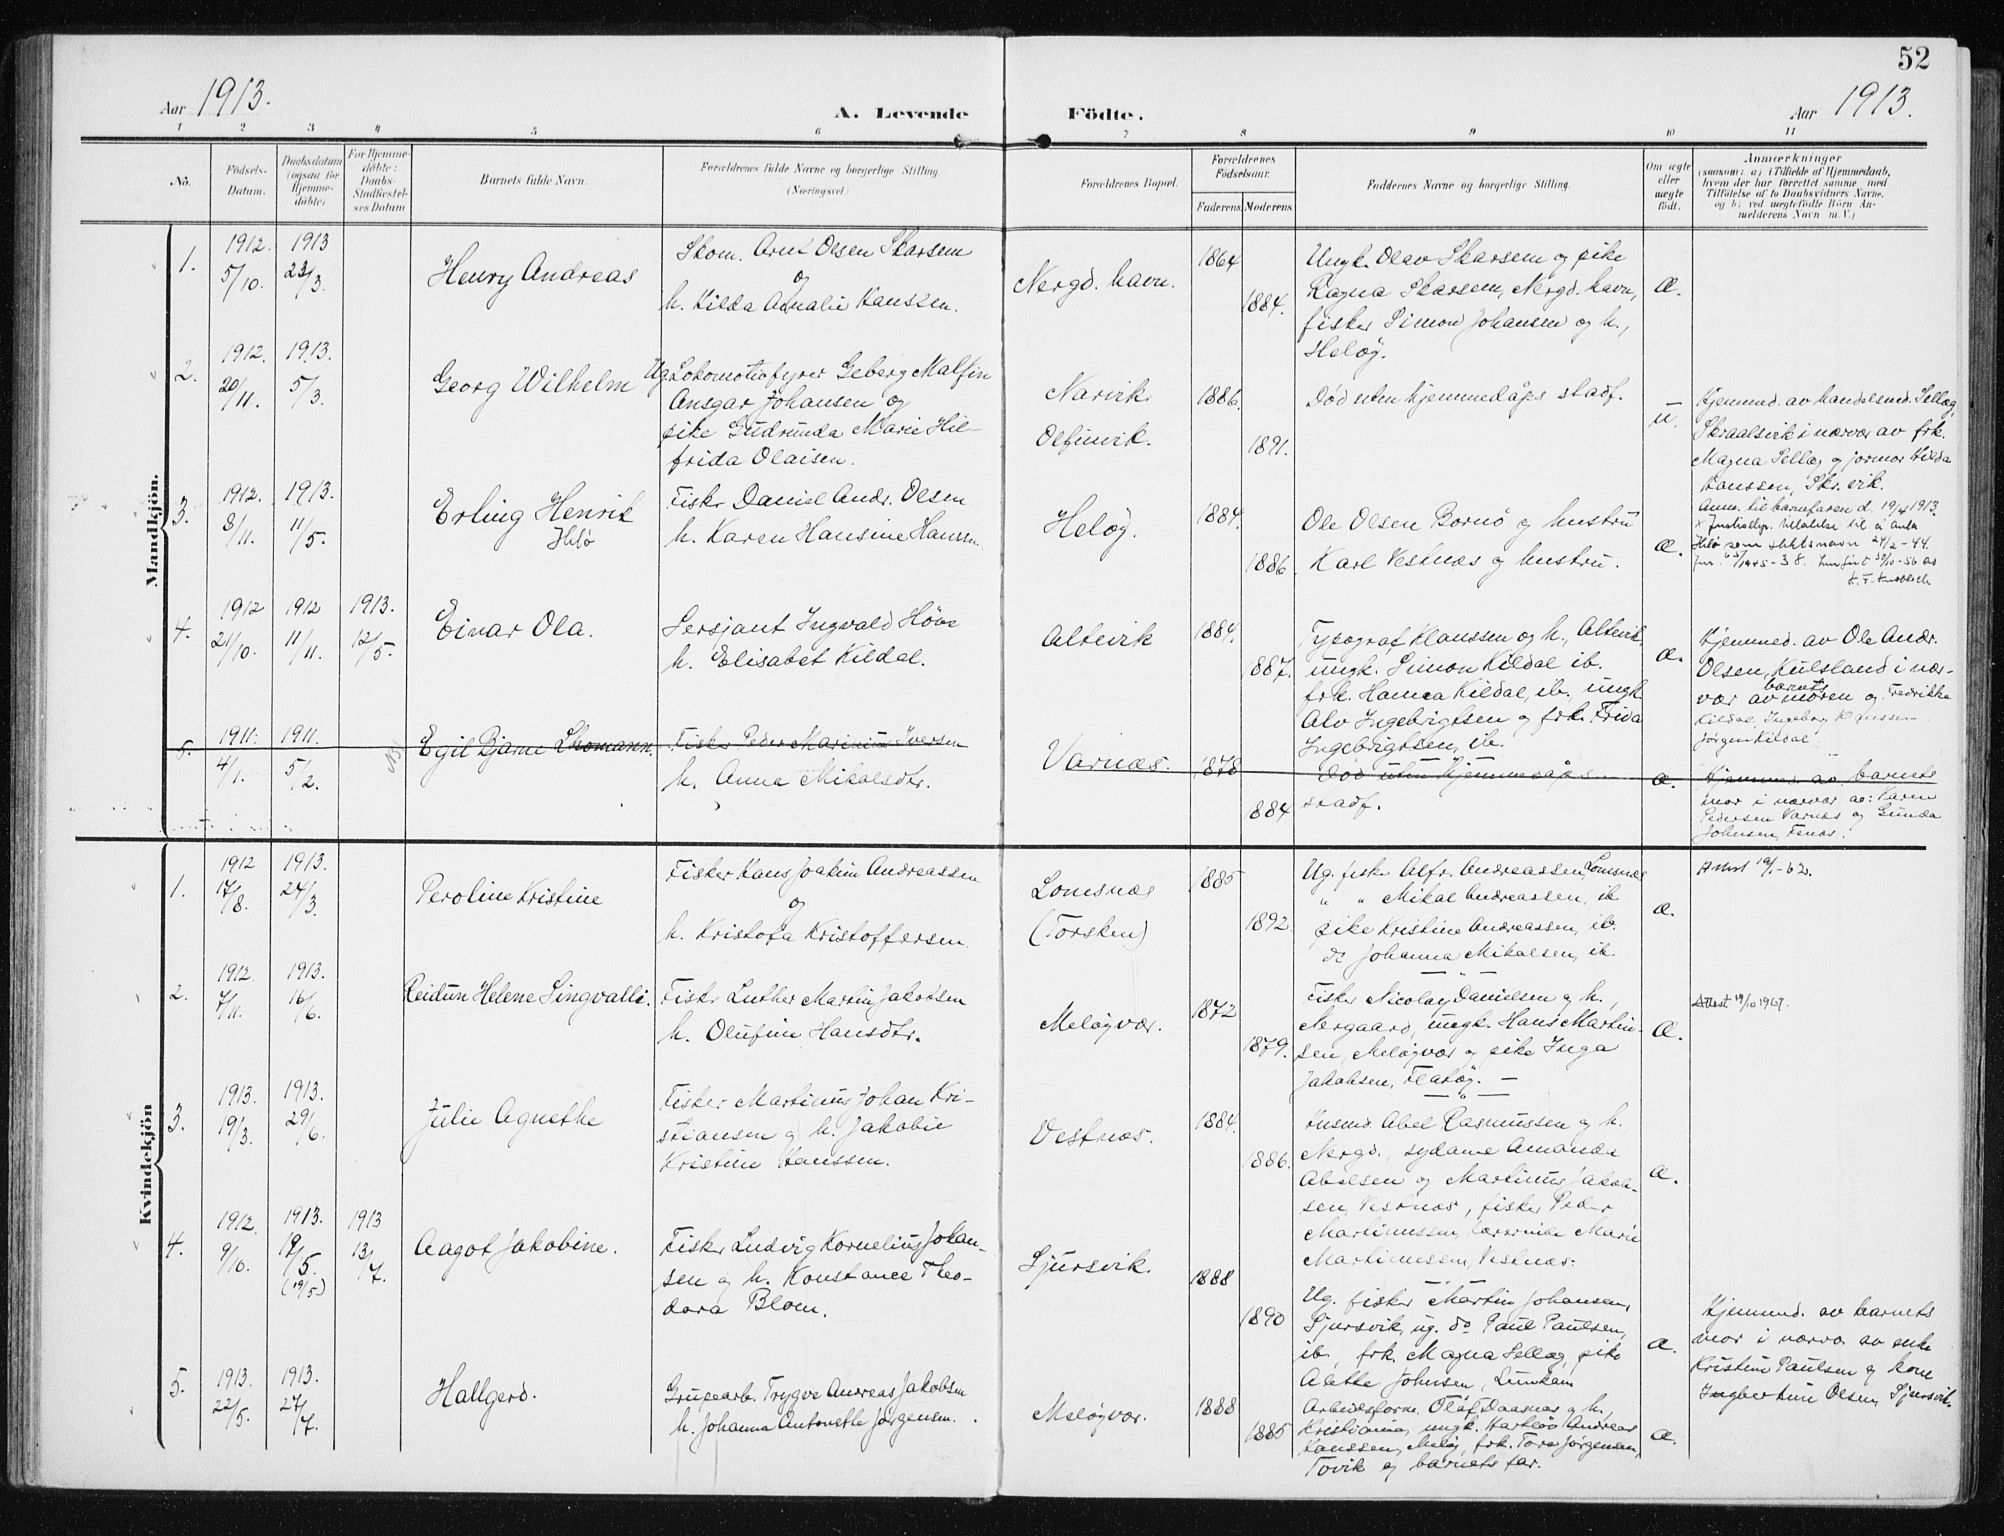 52
Aar 1913.
A. Levende Födte.
Aar 1913.
1 2 3 4 5 6 7 8 9 10 11
No.
Födsels-
Datum.
Daabsdatum
(ogsaa for
Hjemme-
döbte)
For Hjemme-
döbte:
Daabs-
Stadfæstel-
ses Datum
Barnets fulde Navn.
Forældrenes fulde Navne og borgerlige Stilling.
(Næringsvei.)
Forældrenes Bopæl.
Forældrenes
Födselsaar.
Faderens. Moderens.
Faddernes Navne og borgerlige Stilling.
Om ægte
eller
uægte
födt.
Anmærkninger
(saasom: a) i Tilfælde af Hjemmedaab,
hvem der har forrettet samme, med
Tilföielse af to Daabsvidners Navne,
og b) ved uægtefödte Börn An-
melderens Navn m. V.)
Mandkjön.
1.
1912.
5/10.
1913
23/3.
Henry Andreas
Skom. Arnt Olsen Skarsem
og
h. Hilda Amalie Hanssen.
Nergd. havn.
1864
1884.
Ungk. Olav Skarsem og pike
Ragna Skarsem, Nergd. havn,
fisker Simon Johansen og h.,
Heløy.
Æ.
2.
1912.
20/11.
1913.
5/3.
Georg Wilhelm
Ug. Lokomotivfyrer Geberg Malfin
Ansgar Johansen og
pike Gudrunda Marie Hil-
frida Olaisen.
Narvik
Olfinvik.
1886.
1891.
Død uten hjemmedåps stadf.
u.
Hjemmed. av handelsmd. Sellæg,
Skraalsvik i nærvær av frk.
Magna Sellæg og jormor Hilda
Hanssen, Skr. vik.
Anm. til barnefaren d. 19/4 1913.
3.
1912.
8/11.
1913.
11/5.
Erling Henrik
Helø
Fisker Daniel Andr. Olsen
h. Karen Hansine Hanssen.
Heløy.
1884.
1886.
Ole Olsen Bornø og hustru
Karl Vestnæs og hustru.
Æ.
x Justisdep. tillatelse til å anta
Helø som slektsnavn 24/2-44.
4.
1912
21/10.
1912
11/11.
1913.
12/5.
Einar Ola.
Sersjant Ingvald Høve
h. Elisabet Kildal.
Altevik
1884.
1887.
Typograf Klaussen og h., Altevik,
ungk. Simon Kildal ib.
frk. Hanna Kildal, ib. ungk.
Alv Ingebrigtsen og frk. Frida
Ingebrigtsen, ib.
Æ.
Hjemmed. av Ole Andr.
Olsen, Kulsland i nær-
vær av barnets moren og Fredrikke
Kildal, Ingeborg Klaussen
Jørgen Kildal.
5.
1911.
4/1.
1911.
5/2.
NB!
Egil Bjarne Thomann.
Fisker Peder Marinius Iversen
h. Anna Mikalsdtr.
Varnæs.
1878
1884
Død uten hjemmedåps
stadf.
Æ.
Hjemmed. av barnets
mor i nærvær av: Karen
Pedersen Varnæs og Gunda
Johnsen, Finnes.
Kvindekjön
1.
1912
17/8.
1913.
24/3.
Peroline Kristine
Fisker Hans Joakim Andreassen
og
h. Kristofa Kristoffersen.
Lomsnæs
(Torsken)
1885
1892.
Ug. fisker Alfr. Andreassen, Lomsnæs
" " Mikal Andreassen, ib
pike Kristine Andreassen, ib.
do Johanna Mikalsen, ib.
Æ.
2.
1912.
7/11.
1913.
16/6.
Reidun Helene Singvalli.
Fisker Luther Martin Jakobsen
h. Olufine Hansdtr.
Meløyvær.
1872
1879.
Fisker Nicolay Danielsen og h.,
Nergaard, ungk. Hans Martin-
sen, Meløyvær og pike Inga
Jakobsen, Flatøy.
Æ.
Attest 19/10 1967.
3.
1913.
19/3.
1913.
29/6.
Julie Agnethe
Fisker Martinus Johan Kri-
stiansen og h. Jakobie
Kristine Hanssen.
Vestnæs.
1884.
1886.
Husmd. Abel Rasmussen og h.
Nergd., sydame Amanda
Abelsen og Martinus Jakob-
sen, Vestnæs, fisker Peder
Martinussen, lærerinde Marie
Martinussen, Vestnæs.
Æ.
4.
1912.
9/10.
1913.
19/5.
(19/5)
1913
13/7.
Aagot Jakobine.
Fisker Ludvig Kornelius Johan-
sen og h. Konstance Theo-
dora Blom.
Sjursvik.
1888
1890
Ug. fisker Martin Johansen,
Sjursvik, ug. do Paul Paulsen,
ib., frk. Magna Sellæg, pike
Alette Johnsen,
Æ.
Hjemmed. av barnets
mor i nærvær av enke
Kristine Paulsen og kone
Ingbertine Olsen, Sjursvik.
5.
1913.
22/5.
1913.
27/7.
Hallgerd.
Grupearb. Trygve Andreas Jakobsen
h. Johanna Antonette Jørgensen.
Meløyvær.
1888
1885
Arbeidsform. Olaf Daasnes og h.,
Kristiania, ungk. Andreas
Hanssen, Meløy, frk. Tora Jørgensen,
Tovik og barnets far.
Æ.